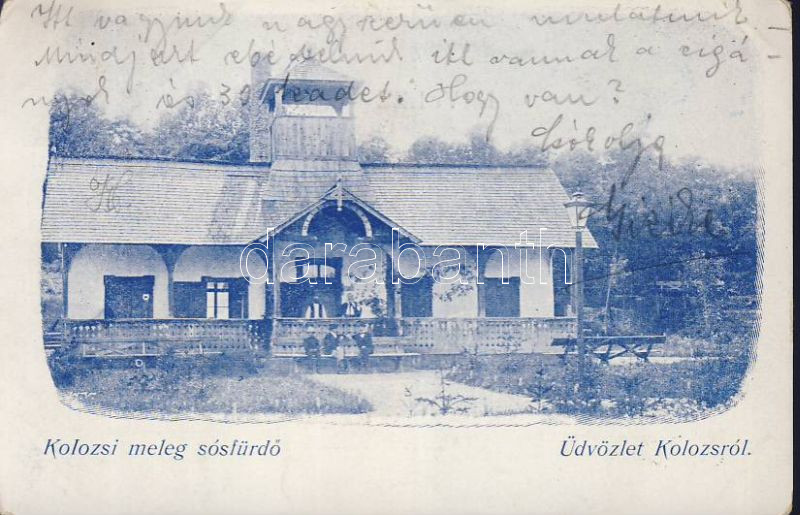 Itt vagyunk nagyszerűen mulatunk
Mindjárt ebédelünk itt vannak a czigá-
nyok és 30 leadet. Hogy van?
Csókolja
Gizike
darabanth.com
Kolozsi meleg sósfürdő
Üdvözlet Kolozsról.